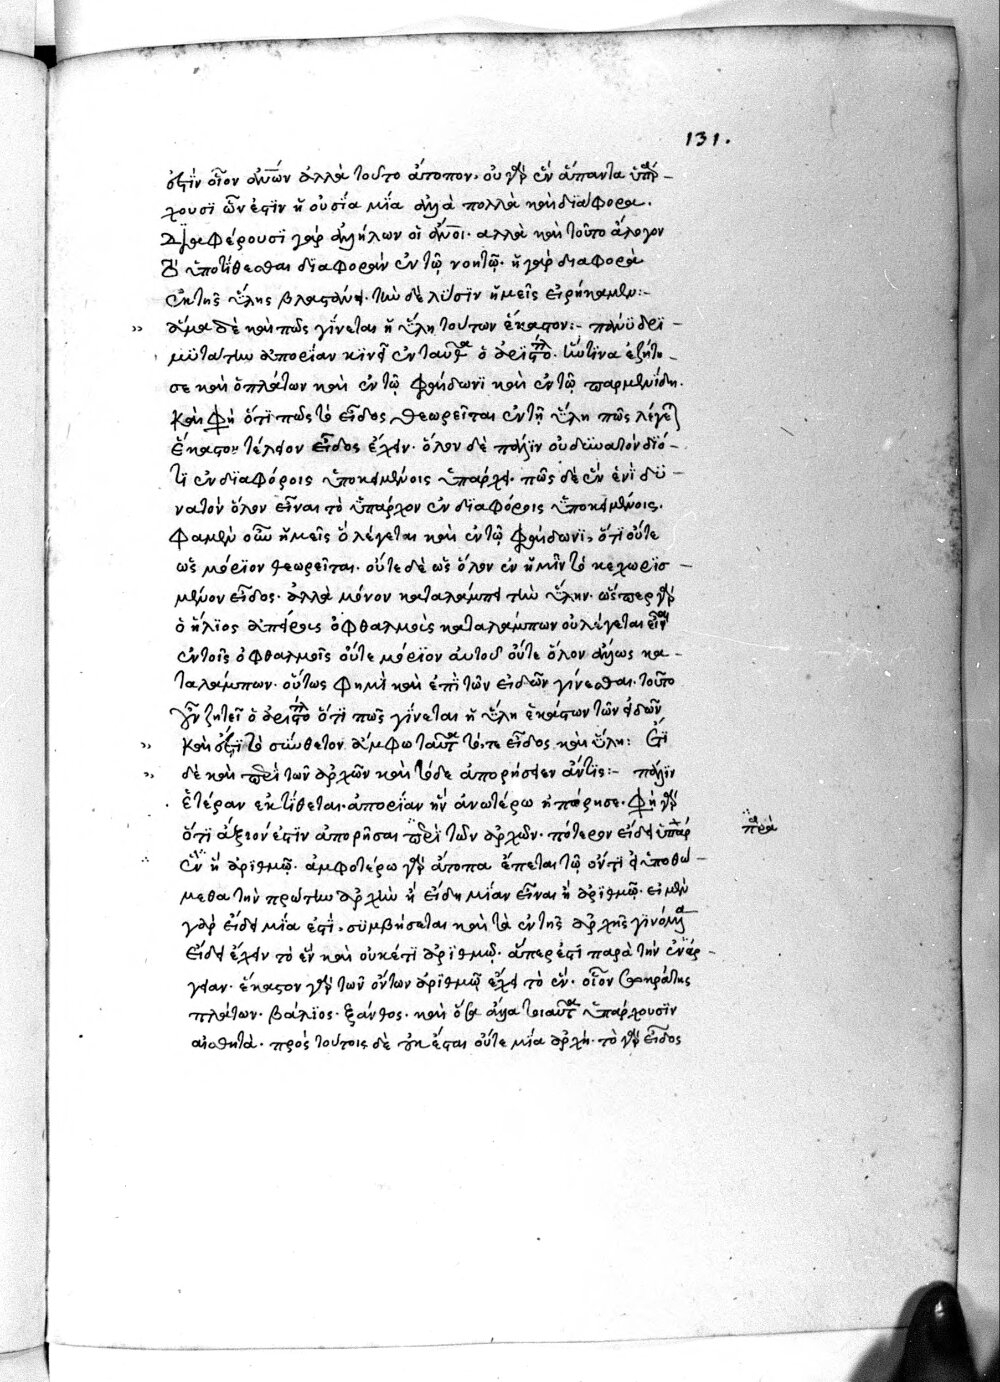 131.
ἐστὶν οἷον ἀνθρώπων ἀλλὰ τοῦτο ἄτοπον, οὐ γὰρ ἓν ἅπαντα ὑπάρ-
χουσι ὧν ἐστὶν ἡ οὐσία μία ἀλλὰ πολλὰ καὶ διάφορα.
Διαφέρουσι γὰρ ἀλλήλων οἱ ἄνθρωποι. ἀλλὰ καὶ τοῦτο ἄλογον
τὸ ὑποτίθεσθαι διαφορὰν ἐν τῷ νοητῷ. ἡ γὰρ διαφορὰ
ἐκ τῆς ὕλης βλαστάνει. τὴν δὲ λύσιν ἡμεῖς εἰρήκαμεν:-
ἅμα δὲ καὶ πῶς γίνεται ἡ ὕλη τούτων ἕκαστον:- πάνυ δρι-
μυτάτην ἀπορίαν κινεῖ ἐνταῦθα ὁ ἀριστοτέλης. ἥντινα ἐζήτη-
σε καὶ ὁ πλάτων καὶ ἐν τῷ φαίδωνι καὶ ἐν τῷ παρμενίδη.
Καὶ φησὶ ὅτι πῶς τὸ εἶδος θεωρεῖται ἐν τῇ ὕλη πῶς λέγει
ἕκαστον τέλειον εἶδος ἔχειν. ὅλον δὲ πάλιν οὐ δυνατὸν διό-
τι ἐν διαφόροις ὑποκειμένοις ὑπάρχει. πῶς δὲ ἓν ἑνὶ δυ-
νατὸν ὅλον εἶναι τὸ ὑπάρχον ἐν διαφόροις ὑποκειμένοις.
Φαμὲν οὖν ἡμεῖς ὃ λέγεται καὶ ἐν τῷ φαίδωνι, ὅτι οὔτε
ὡς μόριον θεωρεῖται. οὔτε δὲ ὡς ὅλον ἐν ἡμῖν τὸ κεχωρισ-
μένον εἶδος. ἀλλὰ μόνον καταλάμπει τὴν ὕλην. ὥσπερ γὰρ
ὁ ἥλιος ἀπείροις ὀφθαλμοῖς καταλάμπων οὐ λέγεται εἶναι
ἐν τοῖς ὀφθαλμοῖς οὔτε μόριον αὐτοῦ οὔτε ὅλον ἀλλως κα-
ταλάμπων. οὕτως φημὶ καὶ ἐπὶ τῶν εἰδῶν γίνεσθαι. τοῦτο
γοῦν ζητεῖ ὁ ἀριστοτέλης ὅτι πῶς γίνεται ἡ ὕλη ἕκαστων τῶν εἰδῶν
Καὶ ἔστι τὸ σύνθετον ἄμφω ταῦτα τό,τε εἶδος καὶ ὕλη: Ἔτι
δὲ καὶ περὶ τῶν ἀρχῶν καὶ τόδε ἀπορήσειεν ἄν τις:- πάλιν
ἑτέραν ἐκτίθεται ἀπορίαν ἣν ἀνωτέρω ἠπόρησε. Φησὶ γὰρ
ὅτι ἄξιον ἐστὶν ἀπορῆσαι περὶ τῶν ἀρχῶν. πότερον εἴδει ὑπάρ
ἓν ἢ ἀριθμῷ. ἀμφοτέρω γὰρ ἄτοπα ἕπεται τῷ ὄντι εἰ ὑποθώ-
μεθα τὴν πρώτην ἀρχὴν ἢ εἴδη μίαν εἶναι ἢ ἀριθμῷ. εἰ μὲν
γὰρ εἴδει μία ἐστί, συμβήσεται καὶ τὰ ἐκ τῆς ἀρχῆς γινόμενα
εἴδει ἔχειν τὸ ἓν καὶ οὐκέτι ἀριθμῷ. ἅπερ ἐστὶ παρὰ τὴν ἐνάρ-
γειαν. ἕκαστον γὰρ τῶν ὄντων ἀριθμῷ ἔχει τὸ ἕν. οἷον σωκράτης
πλάτων. βάλιος. ξάνθος. καὶ ὅσα ἄλλα τοιαῦτα ὑπάρχουσιν
αἰσθητά. πρὸς τούτοις δὲ οὐκ ἔσται οὔτε μία ἀρχὴ. τὸ γὰρ εἶδος